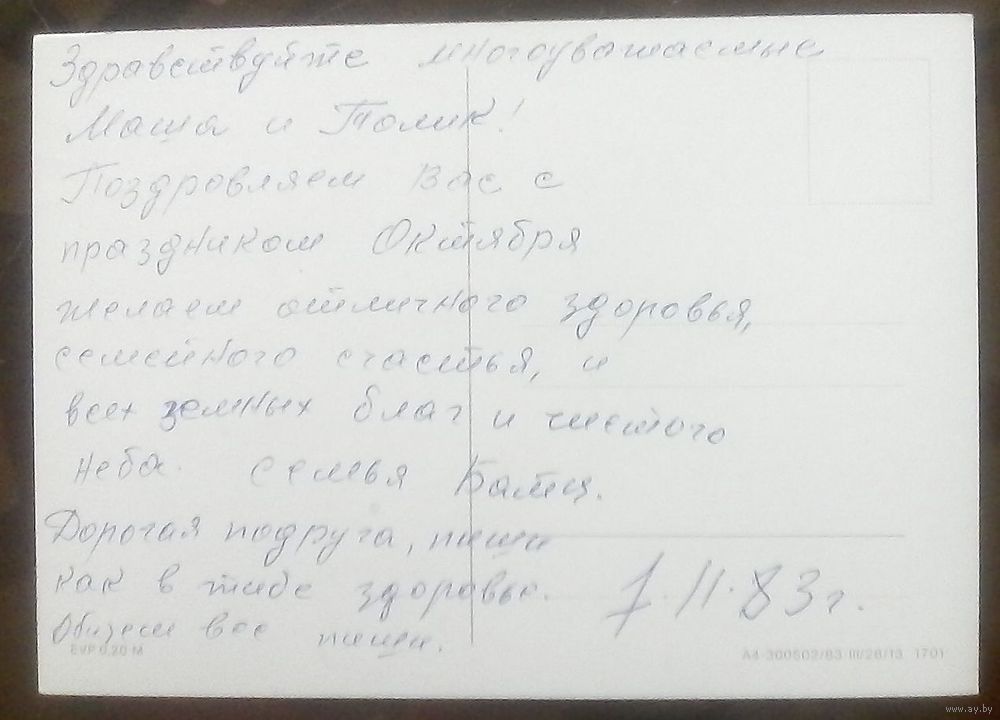 Здравствуйте многоуважаемые
Маша и Толик!
Поздровляем Вас с
праздником Октября
желаем отличного здоровья,
семейного счастья, и
всех земных благ и чистого
неба. семья
Дорогая подруга, пиши
как в тибе здоровье.
все пиши.
7.11.83г.
EVP 0,20 M
A4-300502/83 III/26/13 1701
www.ay.by